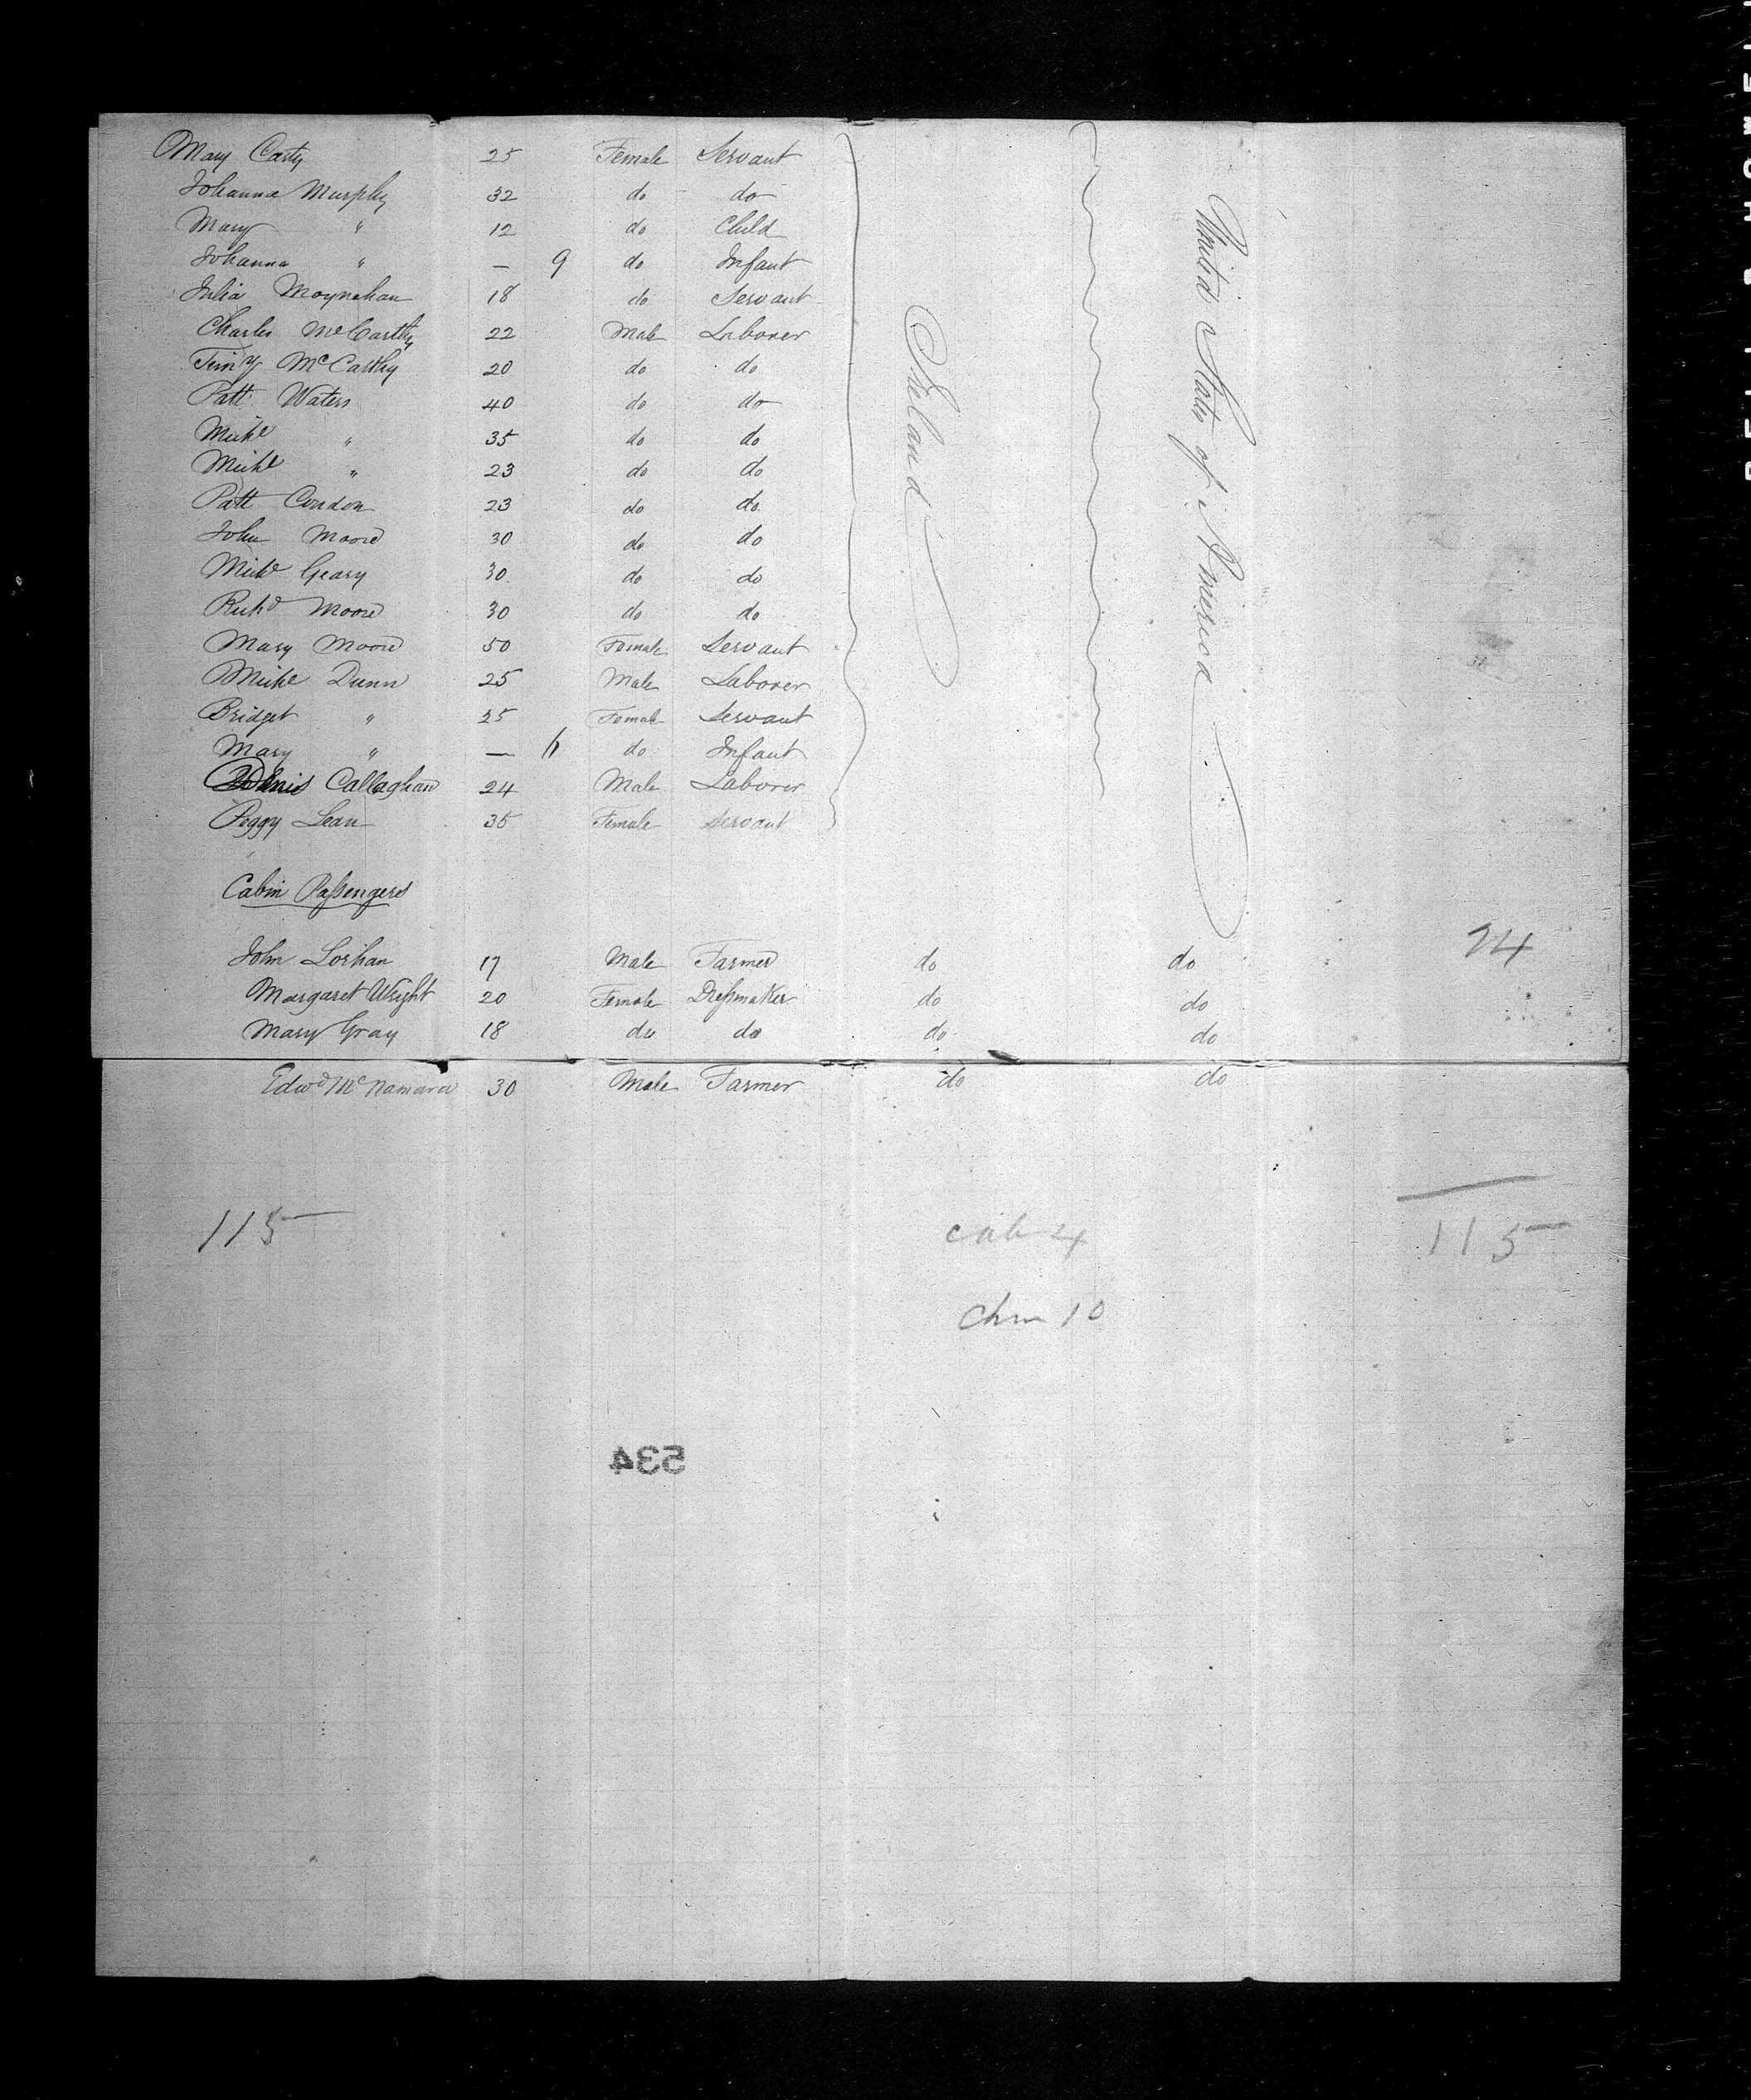 Mary Carty 25 Female Servant
Johanna Murphy 32 do do
Mary " 12 do Child
Johanna " — 9 do Infant
Julia Moynehan 18 do Servant
Charles McCarthy 22 Male Laborer
Timy McCarthy 20 do do
Patt Waters 40 do do
Michl " 35 do do
Michl " 23 do do
Patt Condon 23 do do
John Moore 30 do do
Michl Geary 30 do do
Richd Moore 30 do do
Mary Moore 50 Female Servant
Michl Dunn 25 Male Laborer
Bridget " 25 Female Servant
Mary " — do Infant
Callaghan 24 Male Laborer
Peggy Lean 35 Female Servant
Ireland
United States of America
Cabin Passengers
24
John 17 Male Farmer do do
Margaret Wright 20 Female Dressmaker do do
Mary Gray 18 do do do do
Edwd McNamara 30 Male Farmer do do
115 cab 4 115
chn 10
534